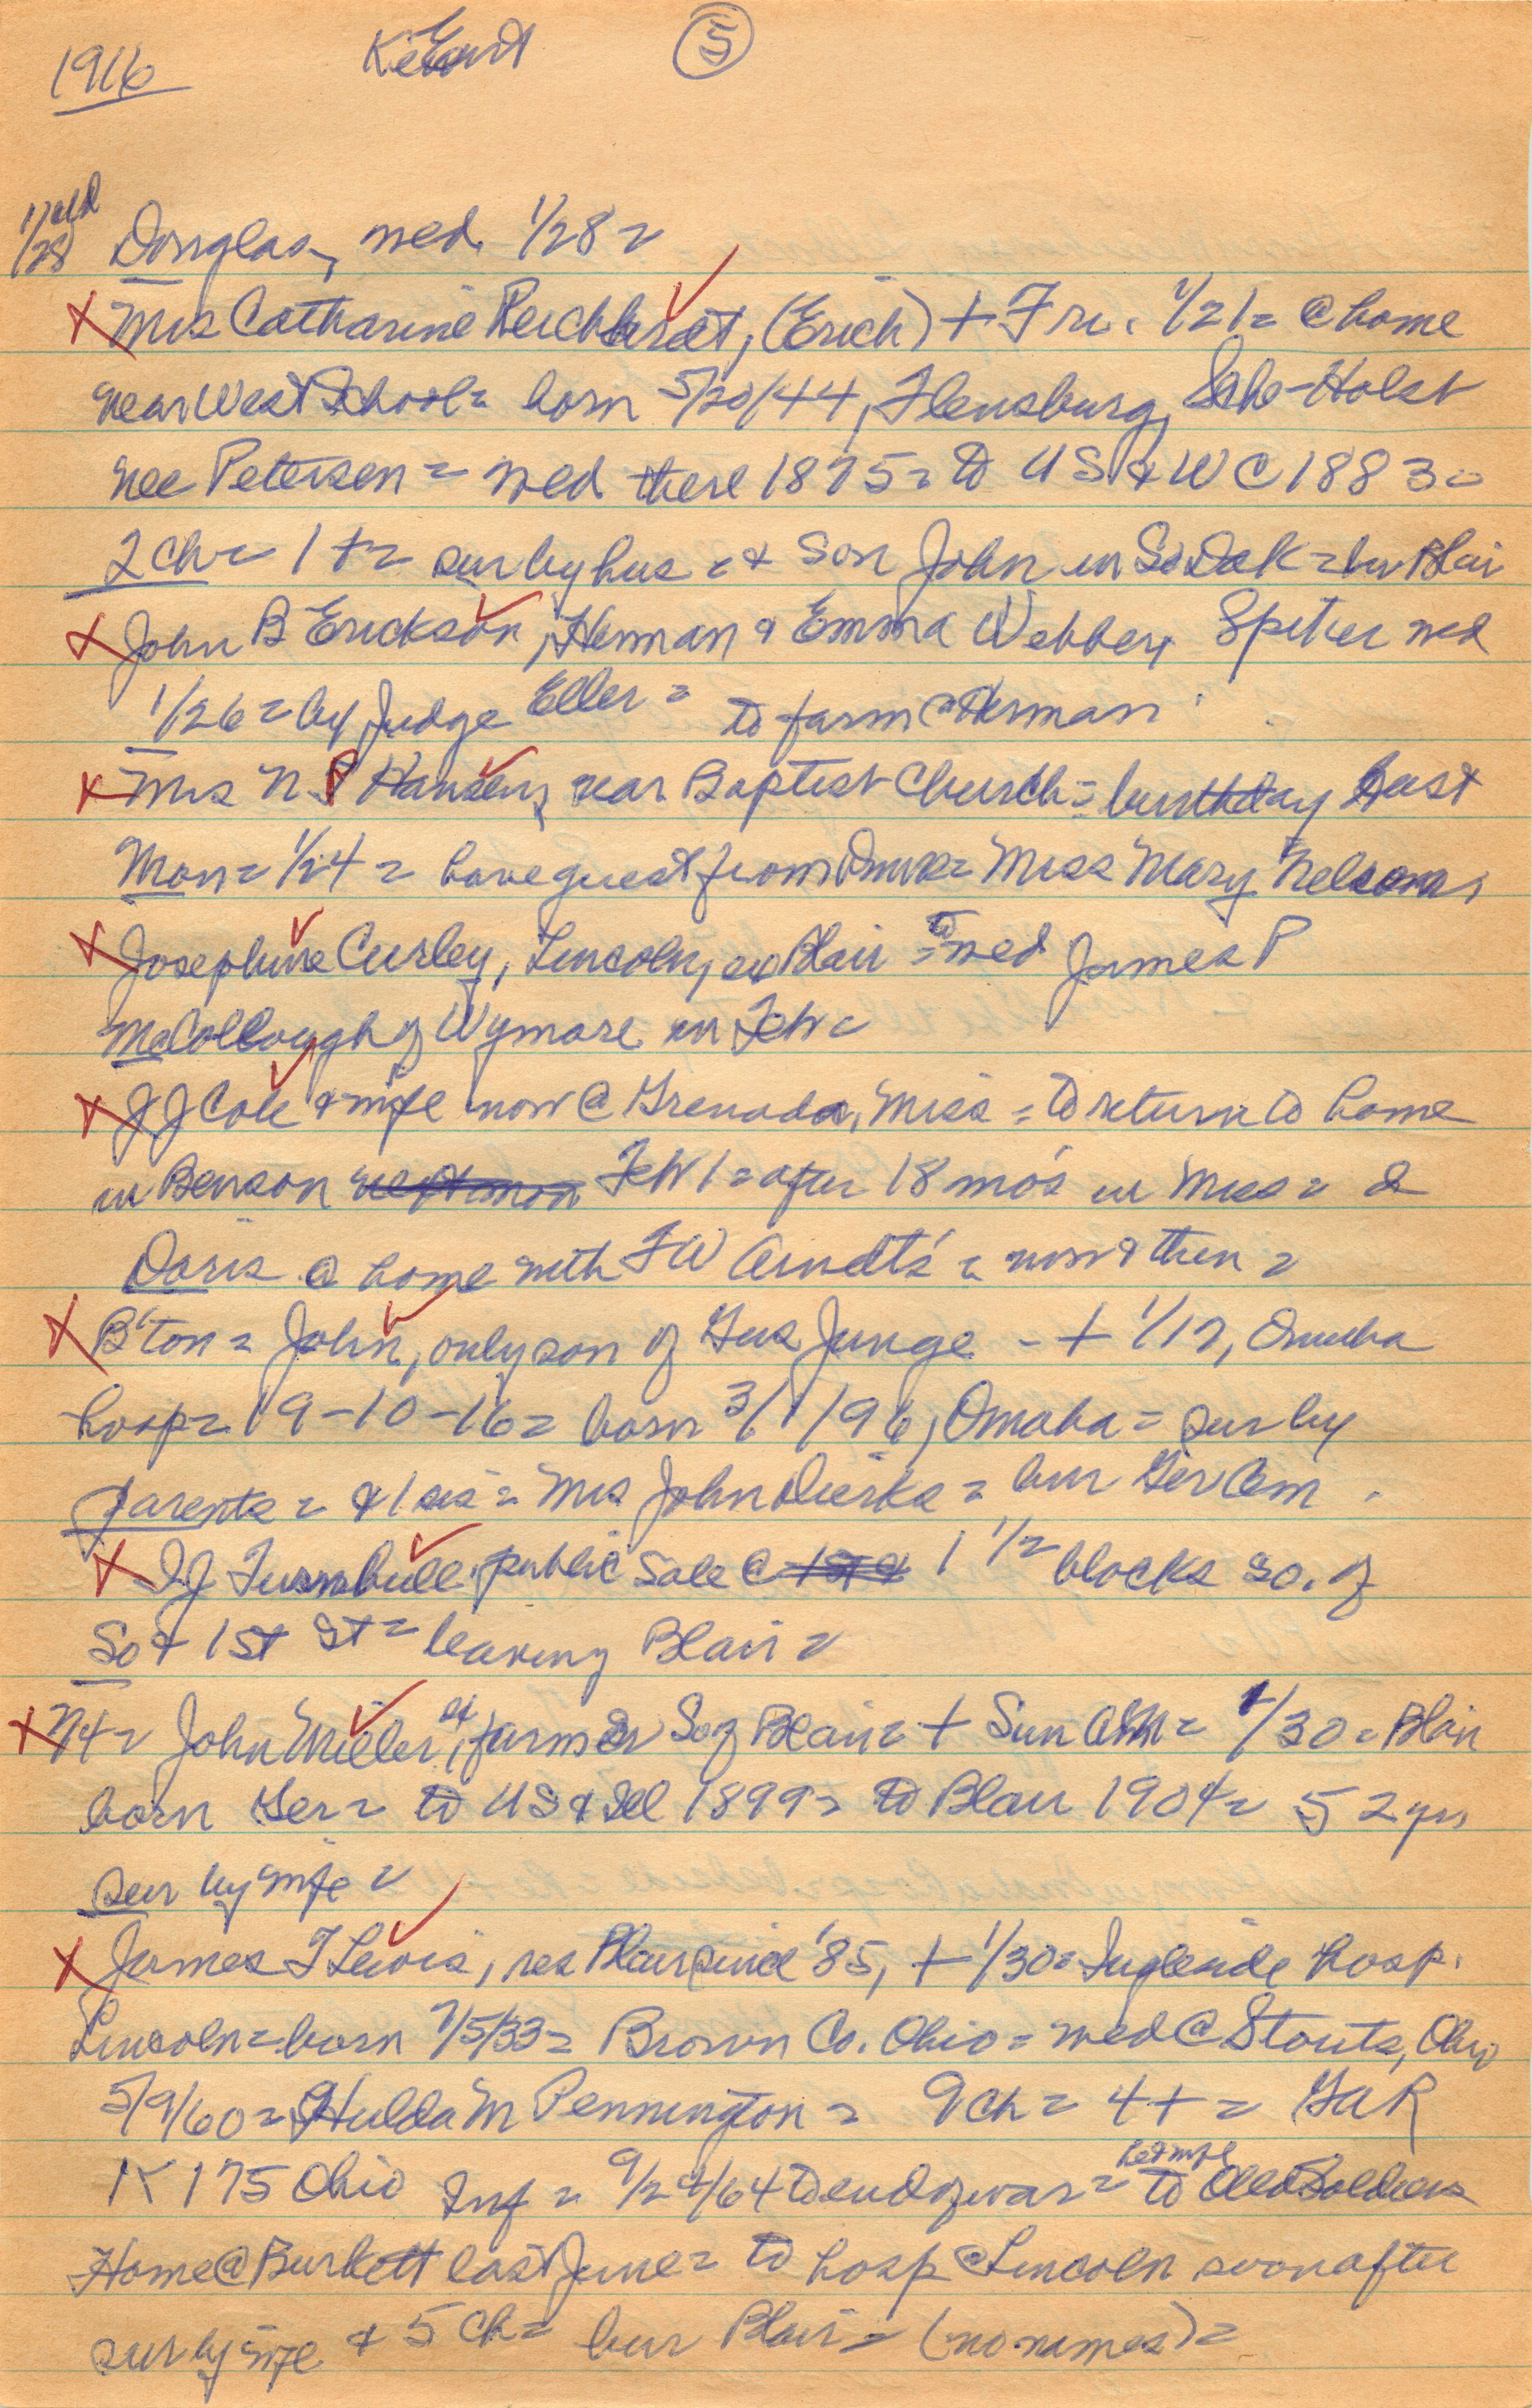 1916 ⑤
1/28 Douglas, med 1/28 =
x Mrs Catharine Reichhardt, (Erich) + Fri. 1/21 = @ home
near West School = born 5/20/44, Flensburg, Schl-Holst
nee Petersen = med there 1875 = to US & WC 1883 =
2 ch = 1 + = sur by hus = & son John in So Dak = bur Blair
x John B Erickson, Herman & Emma Webber, Spiker med
1/26 = by Judge Eller = to farm @ Herman
x Mrs N P Hansen, near Baptist Church = birthday last
Mon = 1/24 = have guest from Denmk = Miss Mary Nelson,
x Josephine Curley, Lincoln, ex Blair = to med James P
McCollough of Wymore in Feb =
x J J Cole & wife now @ Grenada, Miss = to return to home
in Benson next mon Feb 1 = after 18 mo's in Miss = &
Doris @ home with F W Arndts' = now & then =
x B'ton = John, only son of Gus Junge - + 1/17, Omaha
hosp = 19-10-16 = born 3/1/96, Omaha = sur by
parents = & 1 sis = Mrs John Dierks = bur Ger Cem.
x I J Turnbull, public sale @ 1st & 1 1/2 blocks so. of
So & 1st St = leaving Blair =
x 2/4 = John Miller, ex farmer So of Blair = + Sun AM = 1/30 = Blair
born Ger = to US & Ill 1899 = to Blair 1904 = 52 yrs
sur by wife =
x James T Lewis, res Blair since '85, + 1/30 = Ingleside hosp.
Lincoln = born 7/5/33 = Brown Co. Ohio = med @ Stouts, Ohio
5/9/60 = Hulda M Pennington = 9 ch = 4 + = GAR
K 175 Ohio Inf = 9/24/64 to end of war = he & wife to Old Soldiers
Home @ Burkett last June = to hosp @ Lincoln soon after
sur by wife & 5 ch = bur Blair = (no names) =